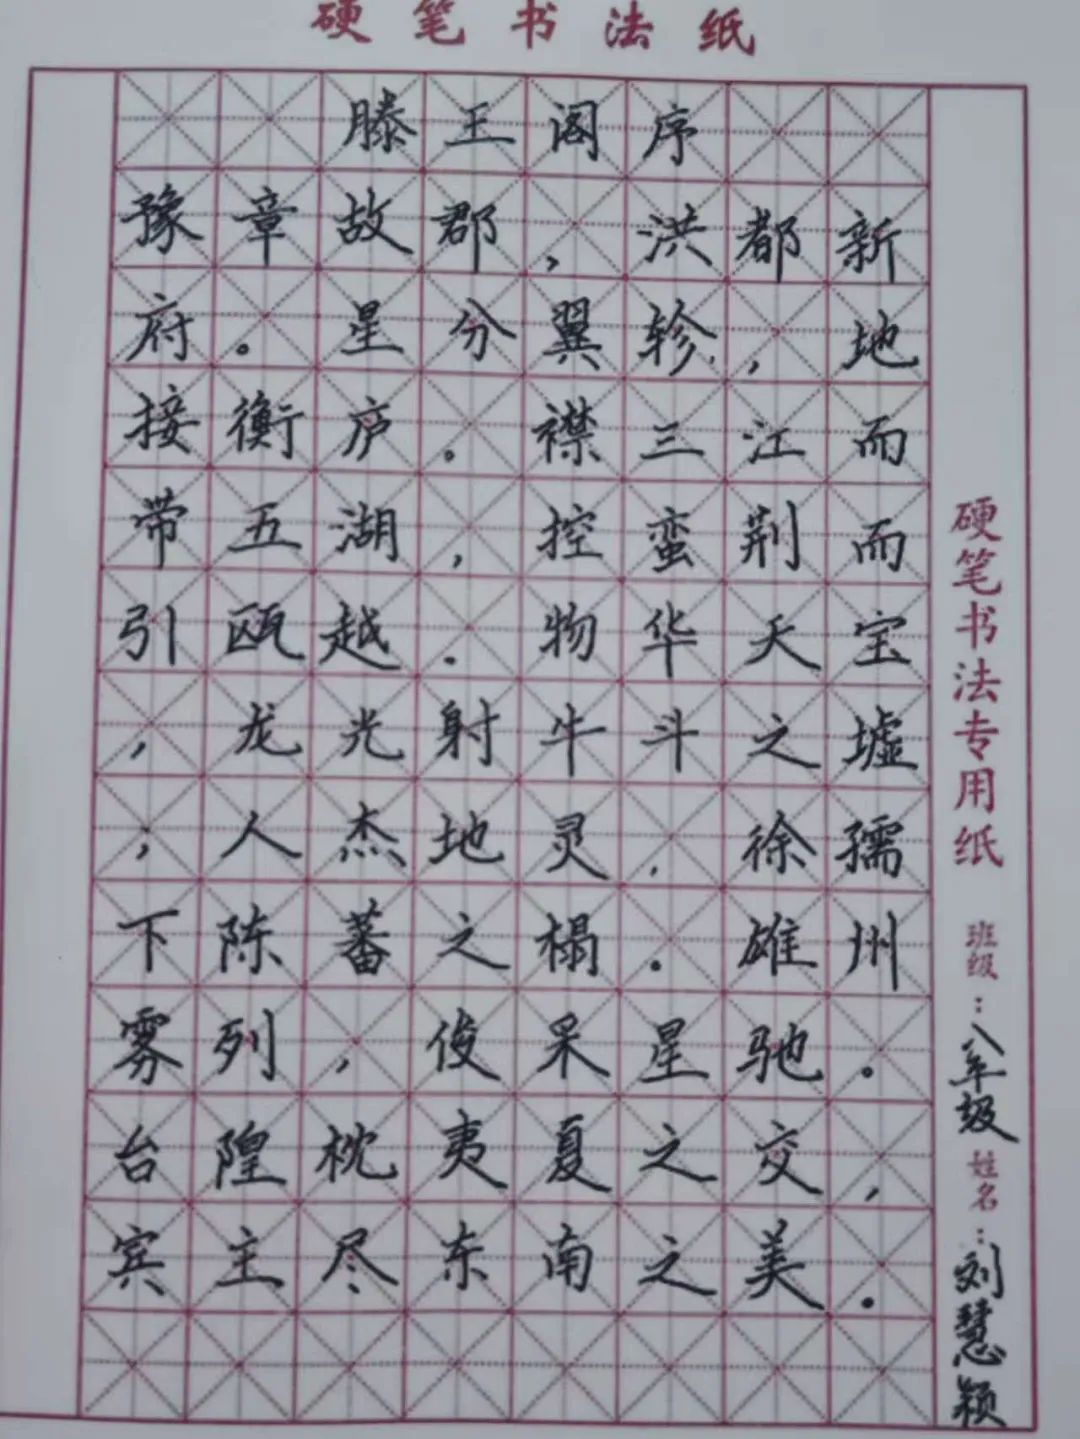 硬笔书法纸
滕王阁序
豫章故郡，洪都新
府。星分翼轸，地
接衡庐。襟三江而
带五湖，控蛮荆而
引瓯越.物华天宝
，龙光射牛斗之墟
；人杰地灵，徐孺
下陈蕃之榻.雄州
雾列，俊采星驰.
台隍枕夷夏之交，
宾主尽东南之美.
硬笔书法专用纸 班级：八年级 姓名：刘慧颖